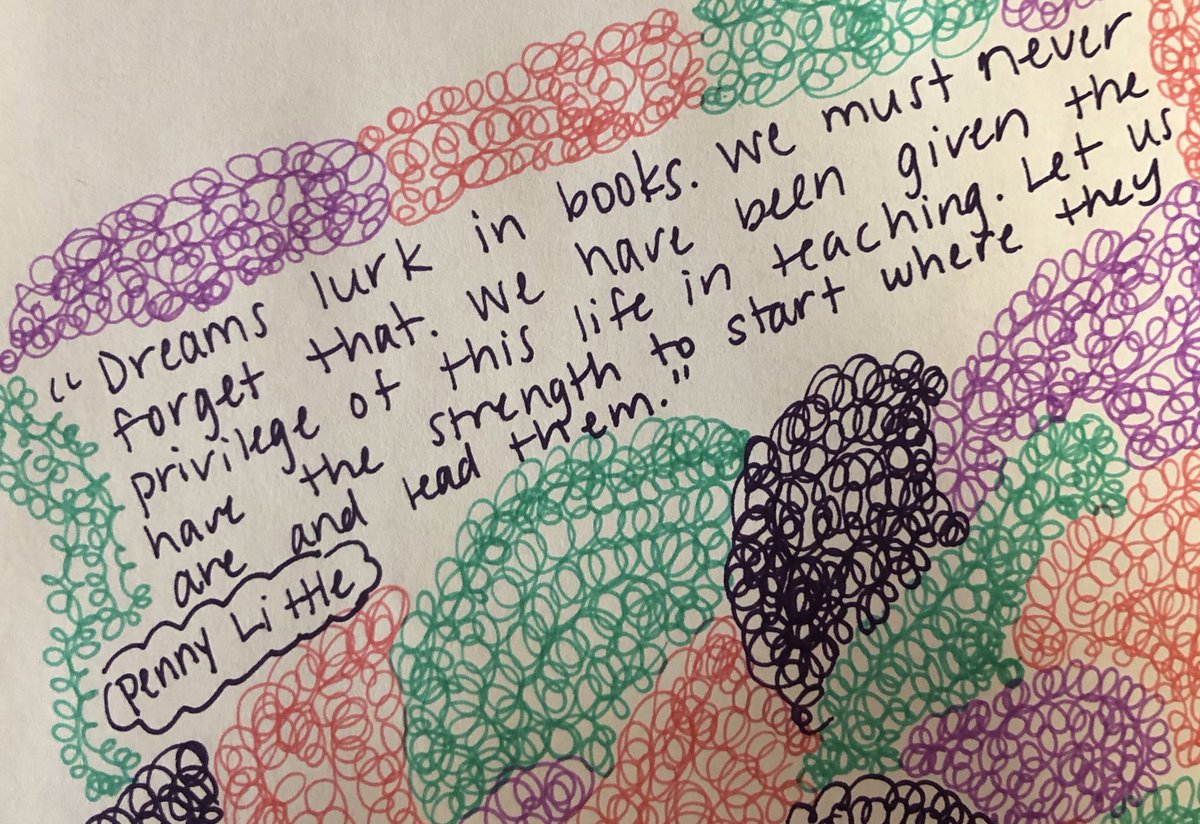 "Dreams lurk in books. We must never
forget that. We have been given the
privilege of this life in teaching. Let us
have the strength to start where they
are and lead them."
Penny Little